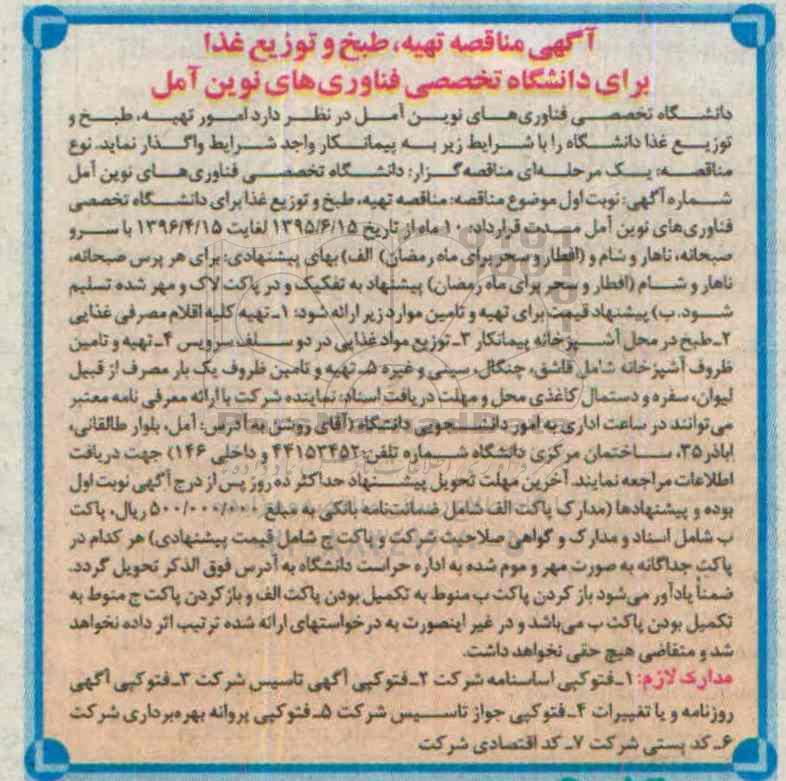 آگهی مناقصه تهیه، طبخ و توزیع غذا
برای دانشگاه تخصصی فناوری‌های نوین آمل
دانشگاه تخصصی فناوری‌های نوین آمل در نظر دارد امور تهیه، طبخ و
توزیع غذا دانشگاه را با شرایط زیر به پیمانکار واجد شرایط واگذار نماید. نوع
مناقصه: یک مرحله‌ای مناقصه‌گزار: دانشگاه تخصصی فناوری‌های نوین آمل
شماره آگهی: نوبت اول موضوع مناقصه: مناقصه تهیه، طبخ و توزیع غذا برای دانشگاه تخصصی
فناوری‌های نوین آمل مدت قرارداد: ۱۰ ماه از تاریخ ۱۳۹۵/۶/۱۵ لغایت ۱۳۹۶/۴/۱۵ با سرو
صبحانه، ناهار و شام و (افطار و سحر برای ماه رمضان) الف) بهای پیشنهادی: برای هر پرس صبحانه،
ناهار و شام (افطار و سحر برای ماه رمضان) پیشنهاد به تفکیک و در پاکت لاک و مهر شده تسلیم
شود. ب) پیشنهاد قیمت برای تهیه و تامین موارد زیر ارائه شود: ۱ـ تهیه کلیه اقلام مصرفی غذایی
۲ـ طبخ در محل آشپزخانه پیمانکار ۳ـ توزیع مواد غذایی در دو سلف سرویس ۴ـ تهیه و تامین
ظروف آشپزخانه شامل قاشق، چنگال، سینی و غیره ۵ـ تهیه و تامین ظروف یک بار مصرف از قبیل
لیوان، سفره و دستمال کاغذی محل و مهلت دریافت اسناد: نماینده شرکت با ارائه معرفی نامه معتبر
می‌توانند در ساعت اداری به امور دانشجویی دانشگاه (آقای روشن به آدرس: آمل، بلوار طالقانی،
اباذر ۳۵، ساختمان مرکزی دانشگاه شماره تلفن: ۴۴۱۵۳۴۵۲ و داخلی ۱۴۶) جهت دریافت
اطلاعات مراجعه نمایند. آخرین مهلت تحویل پیشنهاد حداکثر ده روز پس از درج آگهی نوبت اول
بوده و پیشنهادها (مدارک پاکت الف شامل ضمانت‌نامه بانکی به مبلغ ۵۰۰/۰۰۰/۰۰۰ ریال، پاکت
ب شامل اسناد و مدارک و گواهی صلاحیت شرکت و پاکت ج شامل قیمت پیشنهادی) هر کدام در
پاکت جداگانه به صورت مهر و موم شده به اداره حراست دانشگاه به آدرس فوق الذکر تحویل گردد.
ضمناً یادآور می‌شود باز کردن پاکت ب منوط به تکمیل بودن پاکت الف و باز کردن پاکت ج منوط به
تکمیل بودن پاکت ب می‌باشد و در غیر اینصورت به درخواستهای ارائه شده ترتیب اثر داده نخواهد
شد و متقاضی هیچ حقی نخواهد داشت.
مدارک لازم: ۱ـ فتوکپی اساسنامه شرکت ۲ـ فتوکپی آگهی تاسیس شرکت ۳ـ فتوکپی آگهی
روزنامه و یا تغییرات ۴ـ فتوکپی جواز تاسیس شرکت ۵ـ فتوکپی پروانه بهره‌برداری شرکت
۶ـ کد پستی شرکت ۷ـ کد اقتصادی شرکت